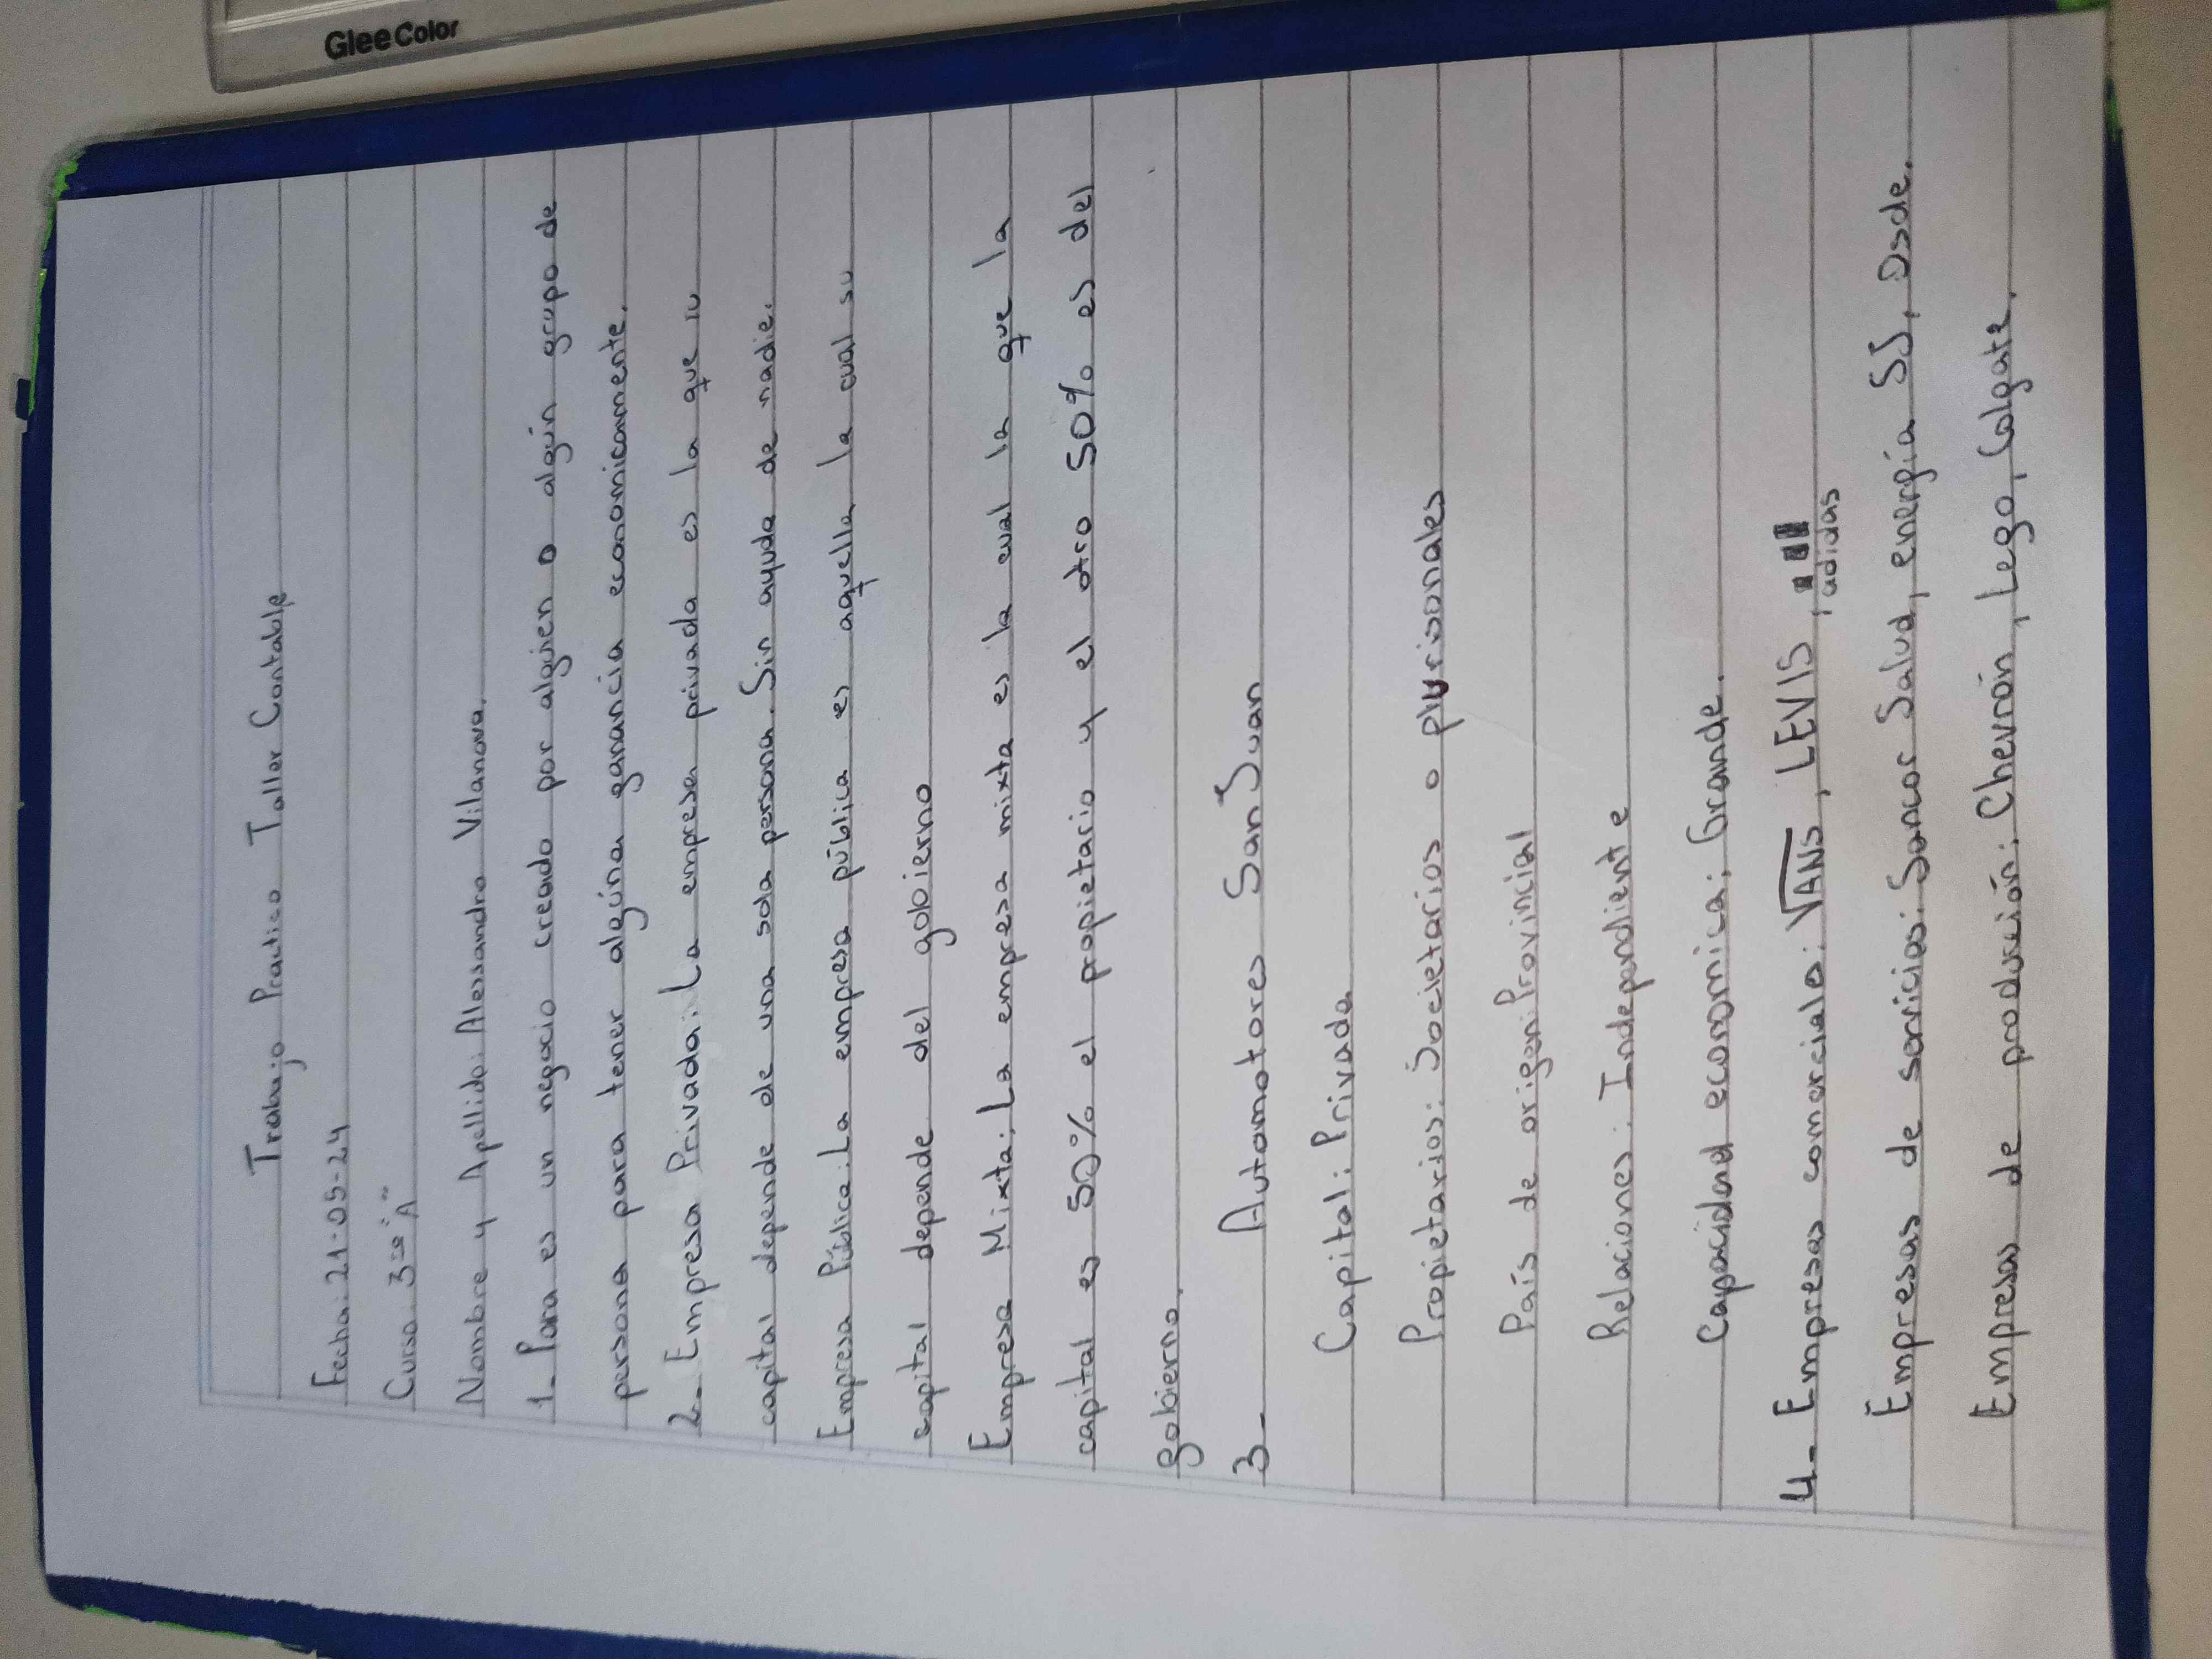 GleeColor
Trabajo Practico Taller Contable
Fecha: 21-05-24
Curso: 3ro "A"
Nombre y Apellido: Alessandro Vilanova.
1- Para es un negocio creado por alguien o algún grupo de
persona para tener alguna ganancia economicamente.
2- Empresa Privada: La empresa privada es la que su
capital depende de una sola persona. Sin ayuda de nadie.
Empresa Pública: La empresa pública es aquella la cual su
capital depende del gobierno
Empresa Mixta: La empresa mixta es la cual la que la
capital es 50% el propietario y el otro 50% es del
gobierno.
3- Automotores San Juan
Capital: Privada
Propietarios: Societarios o plurisonales
País de origen: Provincial
Relaciones: Independiente
Capacidad economica: Grande.
4- Empresas comerciales: VANS, LEVIS, adidas
Empresas de servicios: Sancor Salud, energía SJ, Osde.
Empresas de producción: Chevrón, Lego, Colgate.